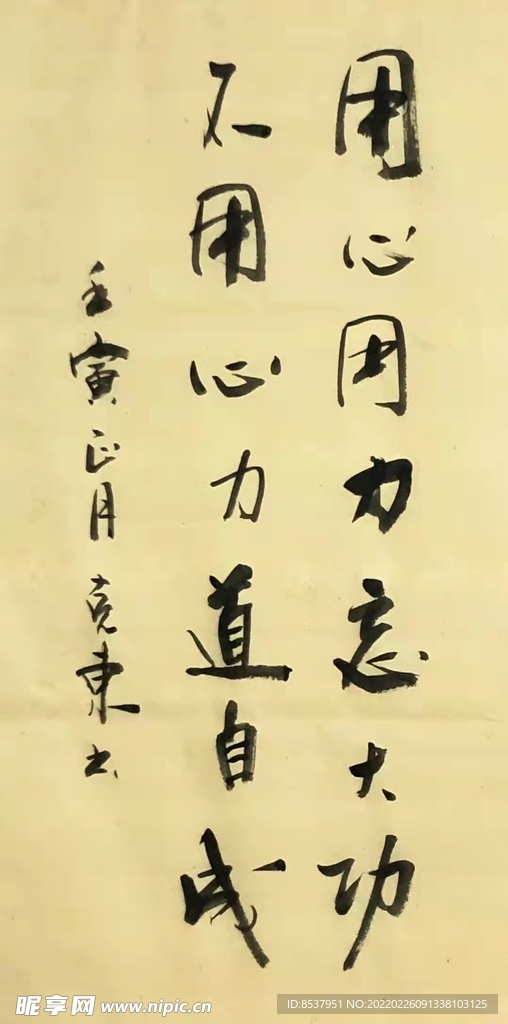 用心用力忘大功
不用心力道自成
壬寅正月 克東书
昵享网 www.nipic.cn
ID:8537951 NO:20220226091338103125